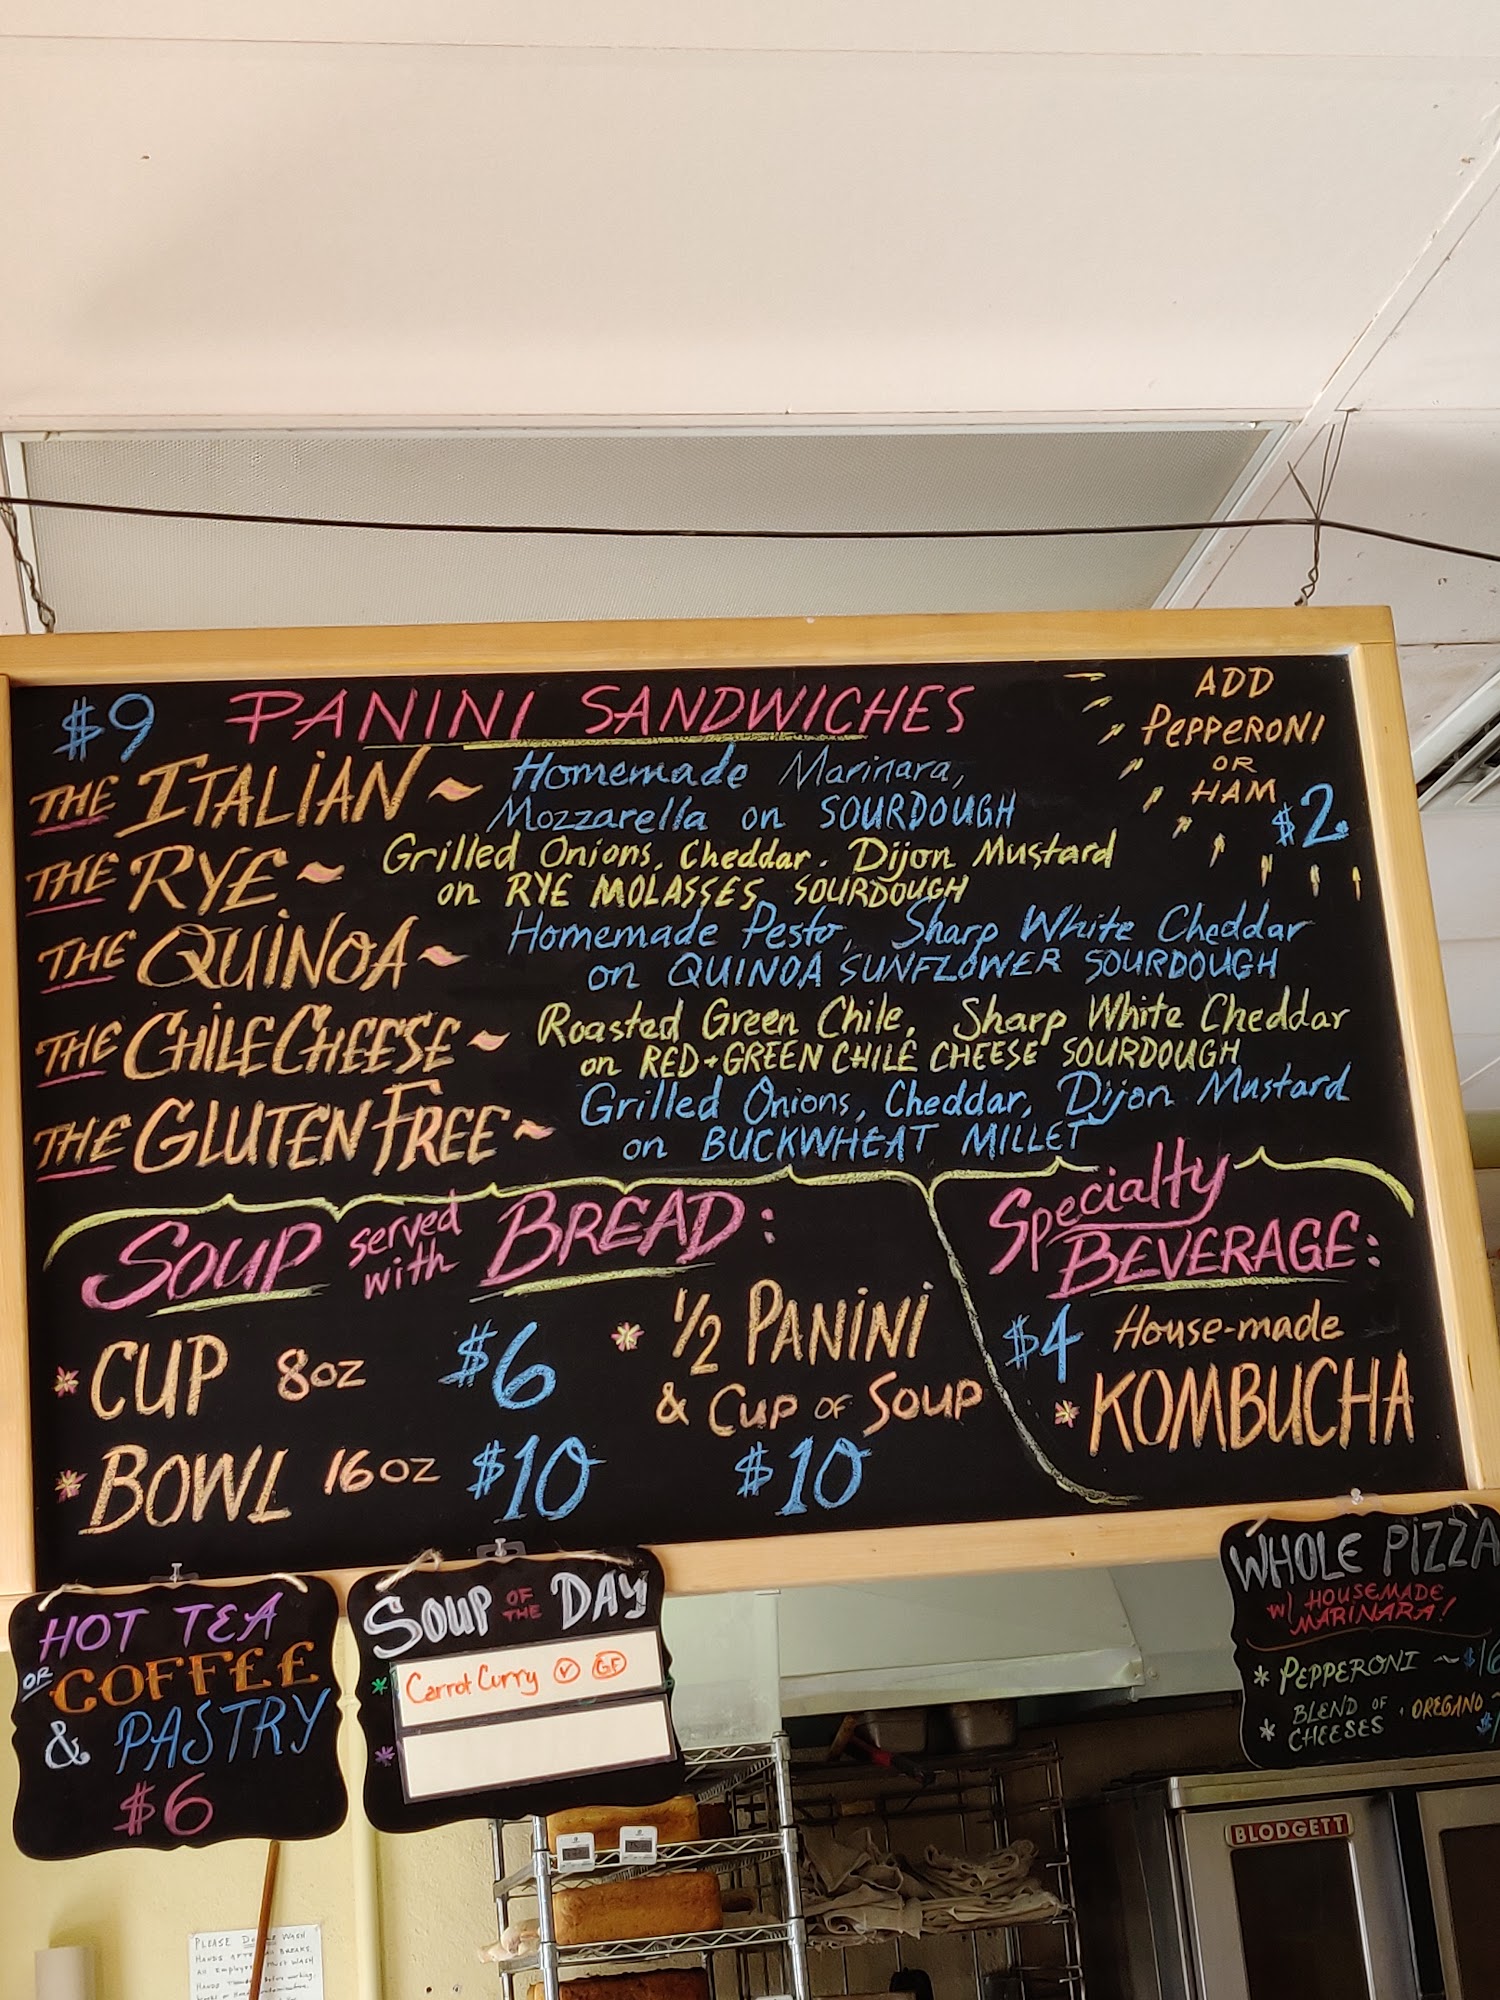 $9 PANINI SANDWICHES
ADD
PEPPERONI
OR
HAM
$2
THE ITALIAN ~ Homemade Marinara,
Mozzarella on SOURDOUGH
THE RYE ~ Grilled Onions, Cheddar, Dijon Mustard
on RYE MOLASSES SOURDOUGH
THE QUINOA ~ Homemade Pesto, Sharp White Cheddar
on QUINOA SUNFLOWER SOURDOUGH
THE CHILE CHEESE ~ Roasted Green Chile, Sharp White Cheddar
on RED + GREEN CHILE CHEESE SOURDOUGH
THE GLUTEN FREE ~ Grilled Onions, Cheddar, Dijon Mustard
on BUCKWHEAT MILLET
SOUP served with BREAD:
* CUP 8oz $6
* BOWL 16oz $10
* 1/2 PANINI
& CUP OF SOUP
$10
Specialty
BEVERAGE:
$4 House-made
* KOMBUCHA
HOT TEA
OR COFFEE
& PASTRY
$6
SOUP OF THE DAY
* Carrot Curry V GF
*
WHOLE PIZZA
W/ HOUSEMADE
MARINARA!
* PEPPERONI ~ $16
* BLEND OF
CHEESES · OREGANO ~
BLODGETT
PLEASE WASH
HANDS AFTER BREAKS
All Employees MUST WASH
HANDS Before working